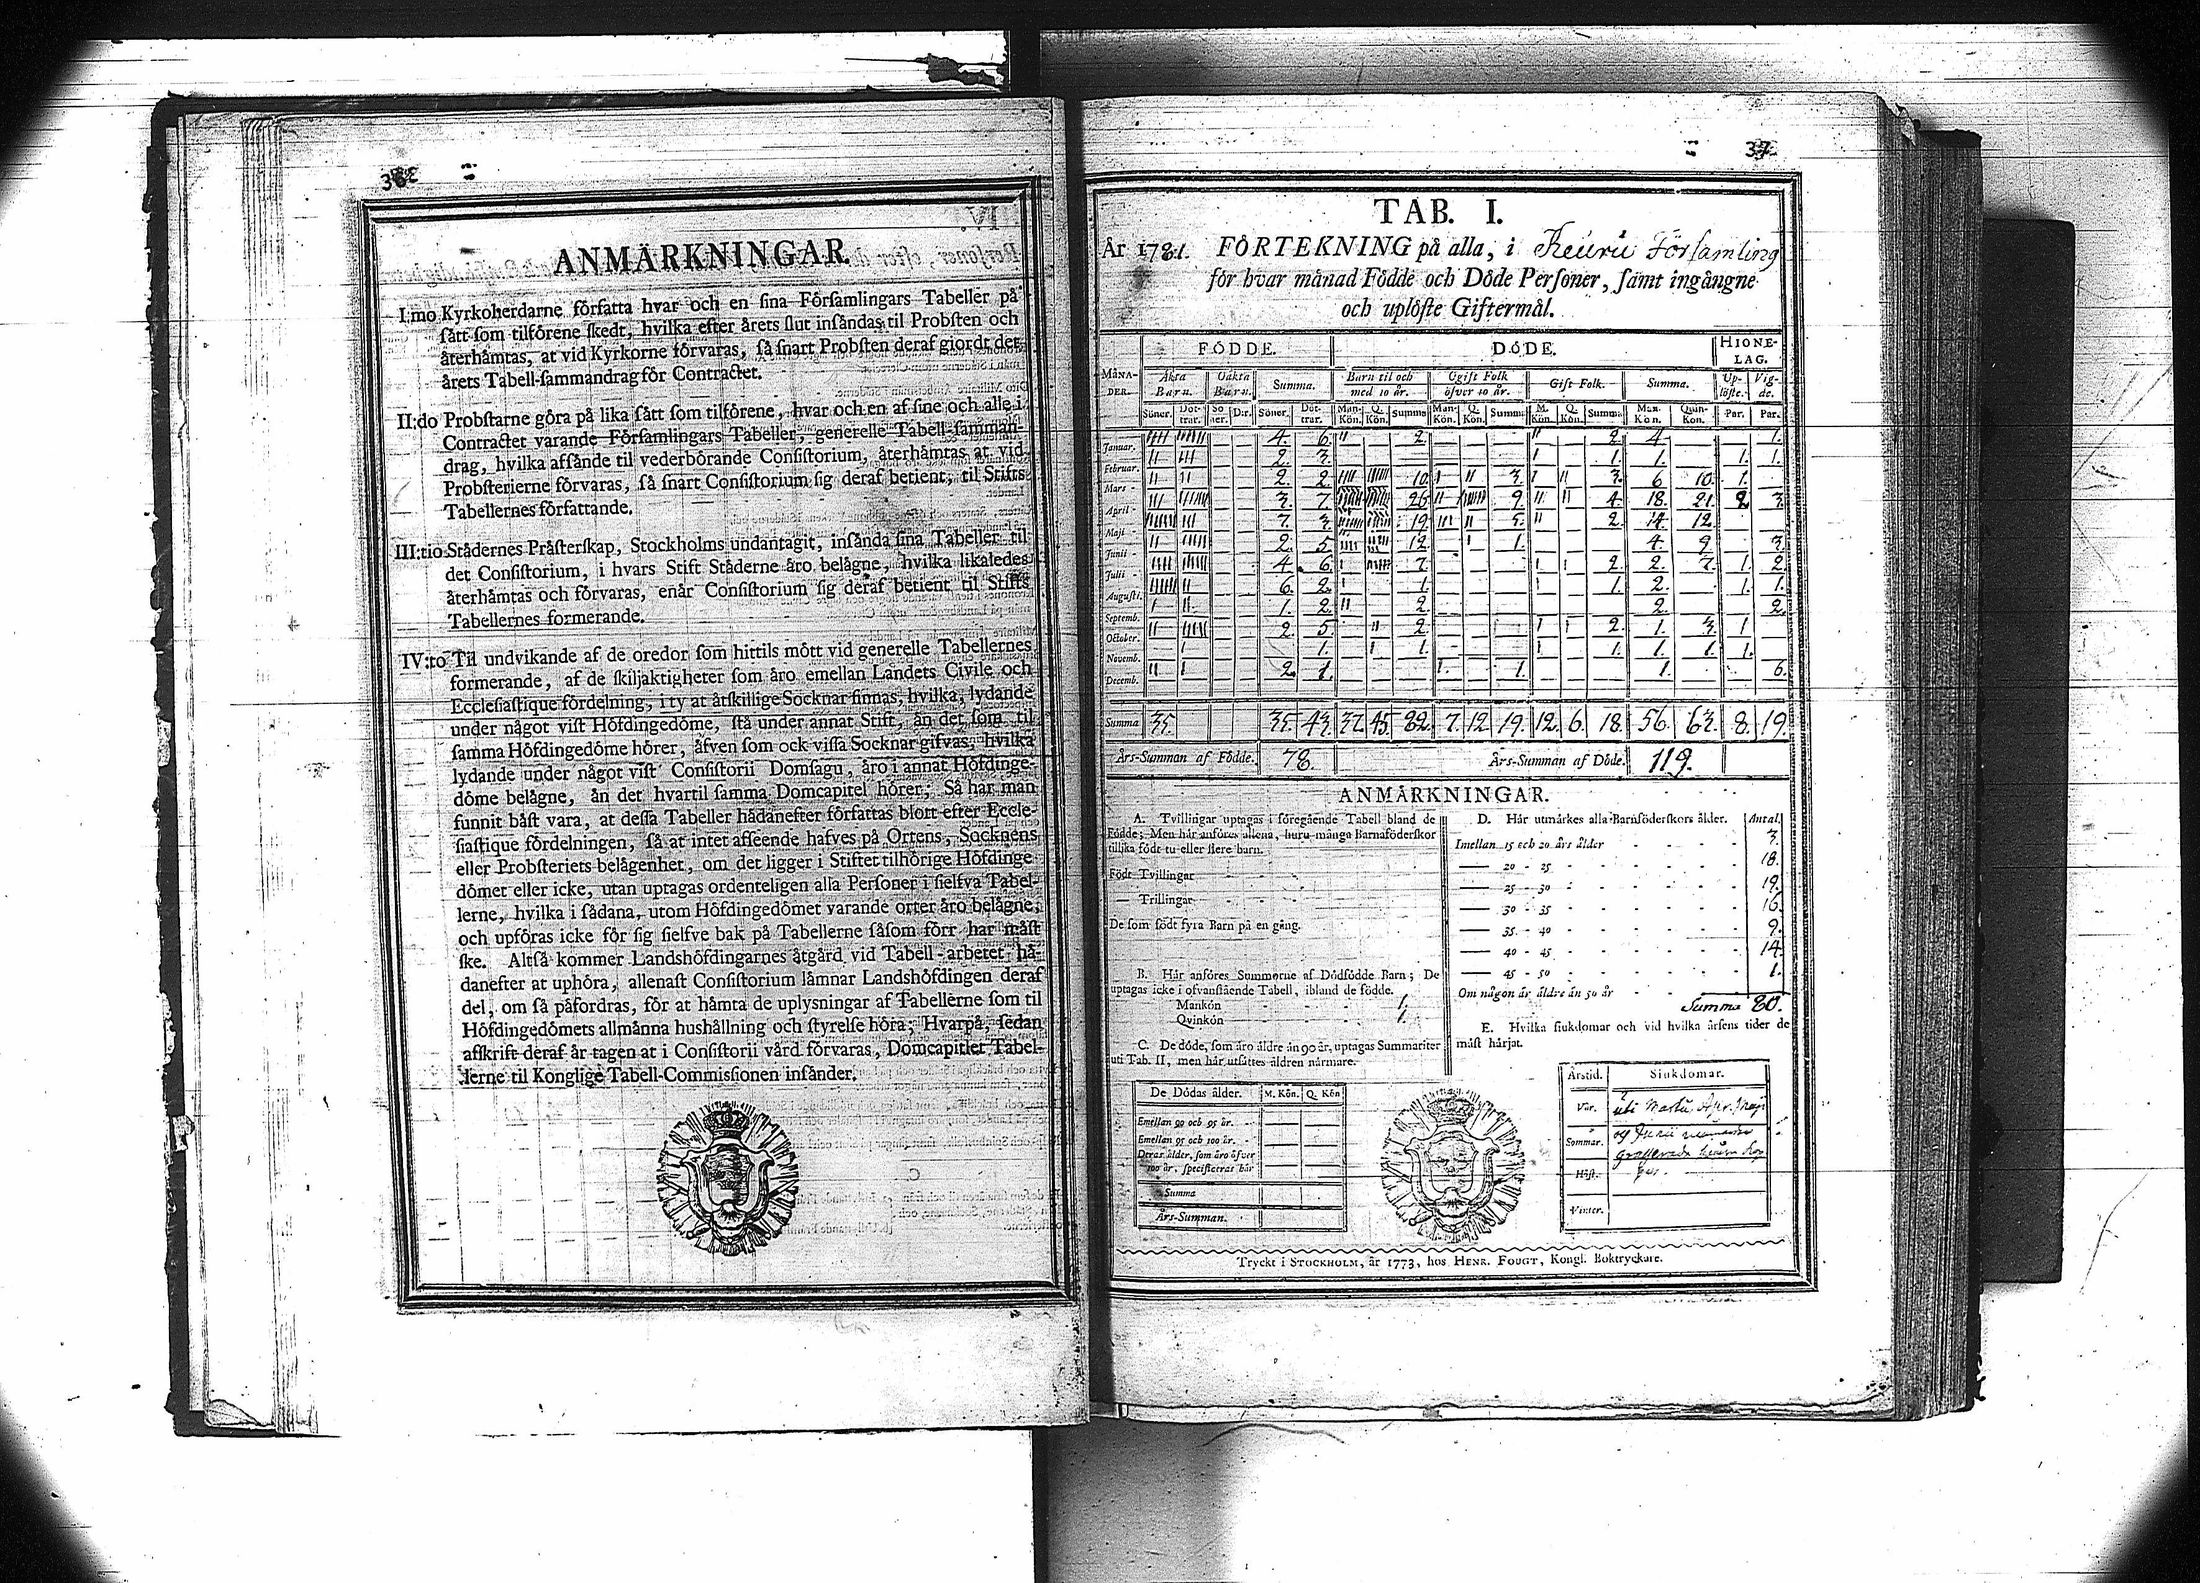 36
ANMÄRKNINGAR.
I:mo Kyrkoherdarne författa hvar och en sina Församlingars Tabeller på
sätt som tilförene skedt, hvilka efter årets slut insändas til Probsten och
återhämtas, at vid Kyrkorne förvaras, så snart Probsten deraf giordt det
årets Tabell-sammandrag för Contractet.
II:do Probstarne göra på lika sätt som tilförene, hvar och en af sine och alle i
Contractet varande Församlingars Tabeller, generelle Tabell-samman-
drag, hvilka afsände til vederbörande Consistorium, återhämtas at vid
Probsterierne förvaras, så snart Consistorium sig deraf betient, til Stifts
Tabellernes författande.
III:tio Städernes Prästerskap, Stockholms undantagit, insända sina Tabeller til
det Consistorium, i hvars Stift Städerne äro belägne, hvilka likaledes
återhämtas och förvaras, enär Consistorium sig deraf betient til Stifts
Tabellernes formerande.
IV:to Til undvikande af de oredor som hittils mött vid generelle Tabellernes
formerande, af de skiljaktigheter som äro emellan Landets Civile och
Ecclesiastique fördelning, i ty at åtskillige Socknar finnas, hvilka, lydande
under något vist Höfdingedöme, stå under annat Stift, än det som til
samma Höfdingedöme hörer, äfven som ock vissa Socknar gifvas, hvilka
lydande under något vist Consistorii Domsagu, äro i annat Höfdinge-
döme belägne, än det hvartil samma Domcapitel hörer; Så har man
funnit bäst vara, at dessa Tabeller hädanefter författas blott efter Eccle-
siastique fördelningen, så at intet afseende hafves på Ortens, Socknens
eller Probsteriets belägenhet, om det ligger i Stiftet tilhörige Höfdinge
dömet eller icke, utan uptagas ordenteligen alla Personer i sielfva Tabel-
lerne, hvilka i sådana, utom Höfdingedömet varande orter äro belägne,
och upföras icke för sig sielfve bak på Tabellerne såsom förr har mäst
ske. Altså kommer Landshöfdingarnes åtgärd vid Tabell-arbetet hä-
danefter at uphöra, allenast Consistorium lämnar Landshöfdingen deraf
del, om så påfordras, för at hämta de uplysningar af Tabellerne som til
Höfdingedömets allmänna hushållning och styrelse höra; Hvarpå, sedan
afskrift deraf är tagen at i Consistorii vård förvaras, Domcapitlet Tabel-
lerne til Konglige Tabell-Commissionen insänder.
37
TAB. I.
År 1781. FÖRTEKNING på alla, i Keuru Församling
för hvar månad Födde och Döde Personer, samt ingångne
och uplöste Giftermål.
FÖDDE. DÖDE. HIONE-LAG.
MÅNA-DER. Äkta Barn. Oäkta Barn. Summa. Barn til och med 10 år. Ogift Folk öfver 10 år. Gift Folk. Summa. Up-löste. Vig-de.
Söner. Döt-trar. Sö ner. D:r. Söner. Döt-trar. Man-Kön. Q. Kön. Summa Man-Kön. Q. Kön. Summa M. Kön. Q. Kön. Summa Man-Kön. Quin-Kön. Par. Par.
Januar. 4. 6. 2. 2. 4. 1.
Februar. 2. 3. 1. 1. 1. 1.
Mars 2. 2. 10. 3. 3. 6 10. 1.
April 3. 7. 26 9. 4. 18. 21. 2 3.
Maji 7. 3. 19. 5. 2. 14. 12.
Junii 2. 5. 12. 1. 4. 9 3.
Julii 4. 6. 7. 2. 2. 7. 1. 2
Augusti. 6. 2. 1. 1. 2. 1. 1.
Septemb. 1. 2. 2. 2. 2.
October. 2. 5. 2. 2. 1. 3. 1
Novemb. 1. 1. 1. 1. 1. 1.
Decemb. 2. 1. 1. 1. 6.
Summa 35. 35. 43. 37. 45. 82. 7. 12. 19. 12. 6. 18. 56. 63. 8. 19.
Års-Summan af Födde. 78. Års-Summan af Döde. 119.
ANMÄRKNINGAR.
A. Tvillingar uptagas i föregående Tabell bland de
Födde; Men här anföres allena, huru många Barnaföderskor
tillika födt tu eller flere barn.
Födt Tvillingar
— Trillingar
De som födt fyra Barn på en gång.
B. Här anföres Summorne af Dödfödde Barn; De
uptagas icke i ofvanstående Tabell, ibland de födde.
Mankön 1.
Qvinkön 1.
C. De döde, som äro äldre än 90 år, uptagas Summariter
uti Tab. II, men här utsättes åldren närmare.
De Dödas ålder. M. Kön. Q. Kön
Emellan 90 och 95 år.
Emellan 95 och 100 år.
Deras ålder, som äro öfver
100 år, specificeras här
Summa
Års-Summan.
D. Här utmärkes alla Barnföderskors ålder. Antal.
Emellan 15 och 20 års ålder 3.
— 20 - 25 18.
— 25 - 30 19.
— 30 - 35 16.
— 35 - 40 9.
— 40 - 45 14.
— 45 - 50 1.
Om någon är äldre än 50 år
Summa 80.
E. Hvilka siukdomar och vid hvilka årsens tider de
mäst härjat.
Årstid. Siukdomar.
Vår. uti Martii, Apr. Maji
Sommar. og Junii
grasserade
Höst.
Vinter.
Tryckt i STOCKHOLM, år 1773, hos HENR. FOUGT, Kongl. Boktryckare.